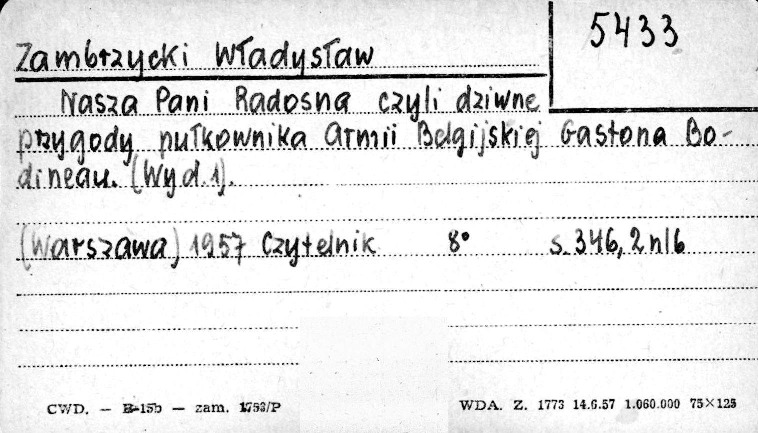 5433
Zambrzycki Władysław
Nasza Pani Radosna czyli dziwne
przygody pułkownika Armii Belgijskiej Gastona Bo-
dineau. (Wyd. 1).
(Warszawa) 1957 Czytelnik 8° s. 346, 2 nlb
CWD. — B-15b — zam. 1753/P
WDA. Z. 1773 14.6.57 1.060.000 75×125